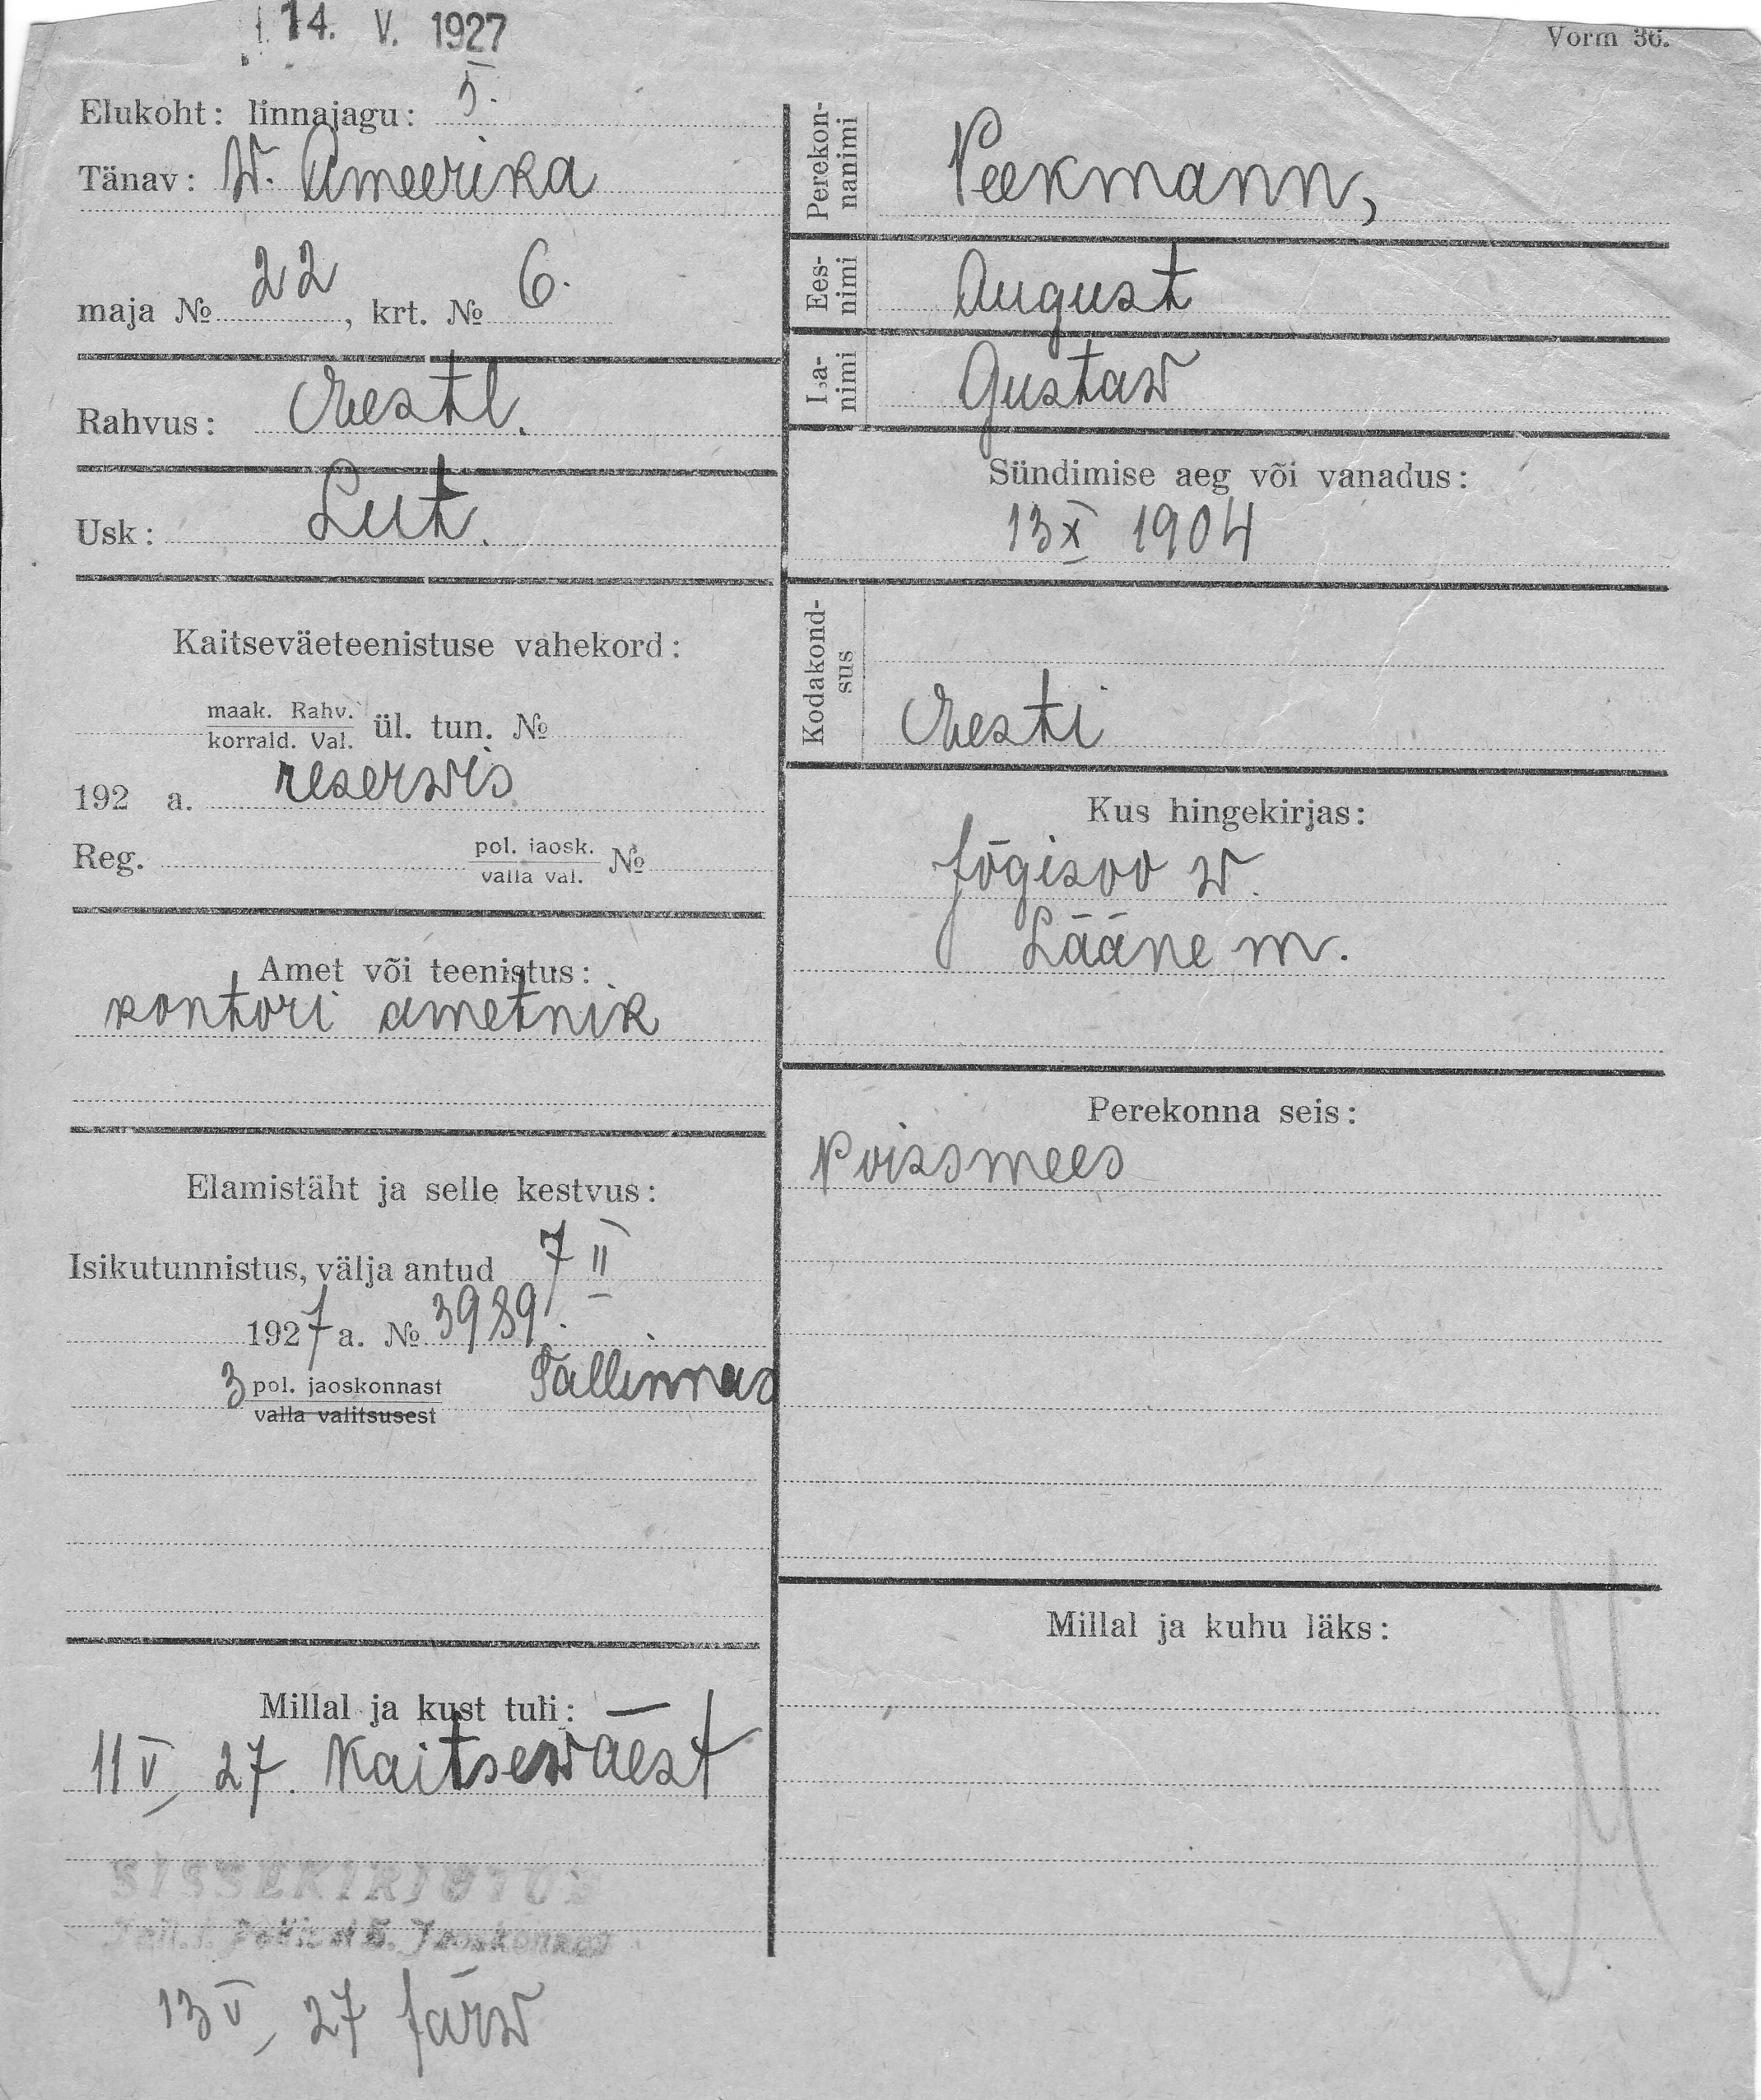 14. V. 1927
Vorm 36.
Elukoht: linnajagu: 5.
Tänav: W. Ameerika
maja № 22, krt. № 6.
Rahvus: Eestl.
Usk: Lut.
Kaitseväeteenistuse vahekord:
maak. Rahv.
korrald. Val.
ül. tun. №
192 a. reservis
Reg. pol. jaosk. №
valla val.
Amet või teenistus:
kontori ametnik
Elamistäht ja selle kestvus:
Isikutunnistus, välja antud 7 II
1927 a. № 3989.
3 pol. jaoskonnast Tallinnas
valla valitsusest
Millal ja kust tuli:
11 V 27. Kaitseväest
SISSEKIRJUTUD
Tall. l. Polits. 5. Jaoskonnas
13 V 27 Järw
Perekon-
nanimi
Peekmann,
Ees-
nimi
August
Isa-
nimi
Gustaw
Sündimise aeg või vanadus:
13 X 1904
Kodakond-
sus
Eesti
Kus hingekirjas:
Jõgisoo w.
Lääne m.
Perekonna seis:
Poissmees
Millal ja kuhu läks: